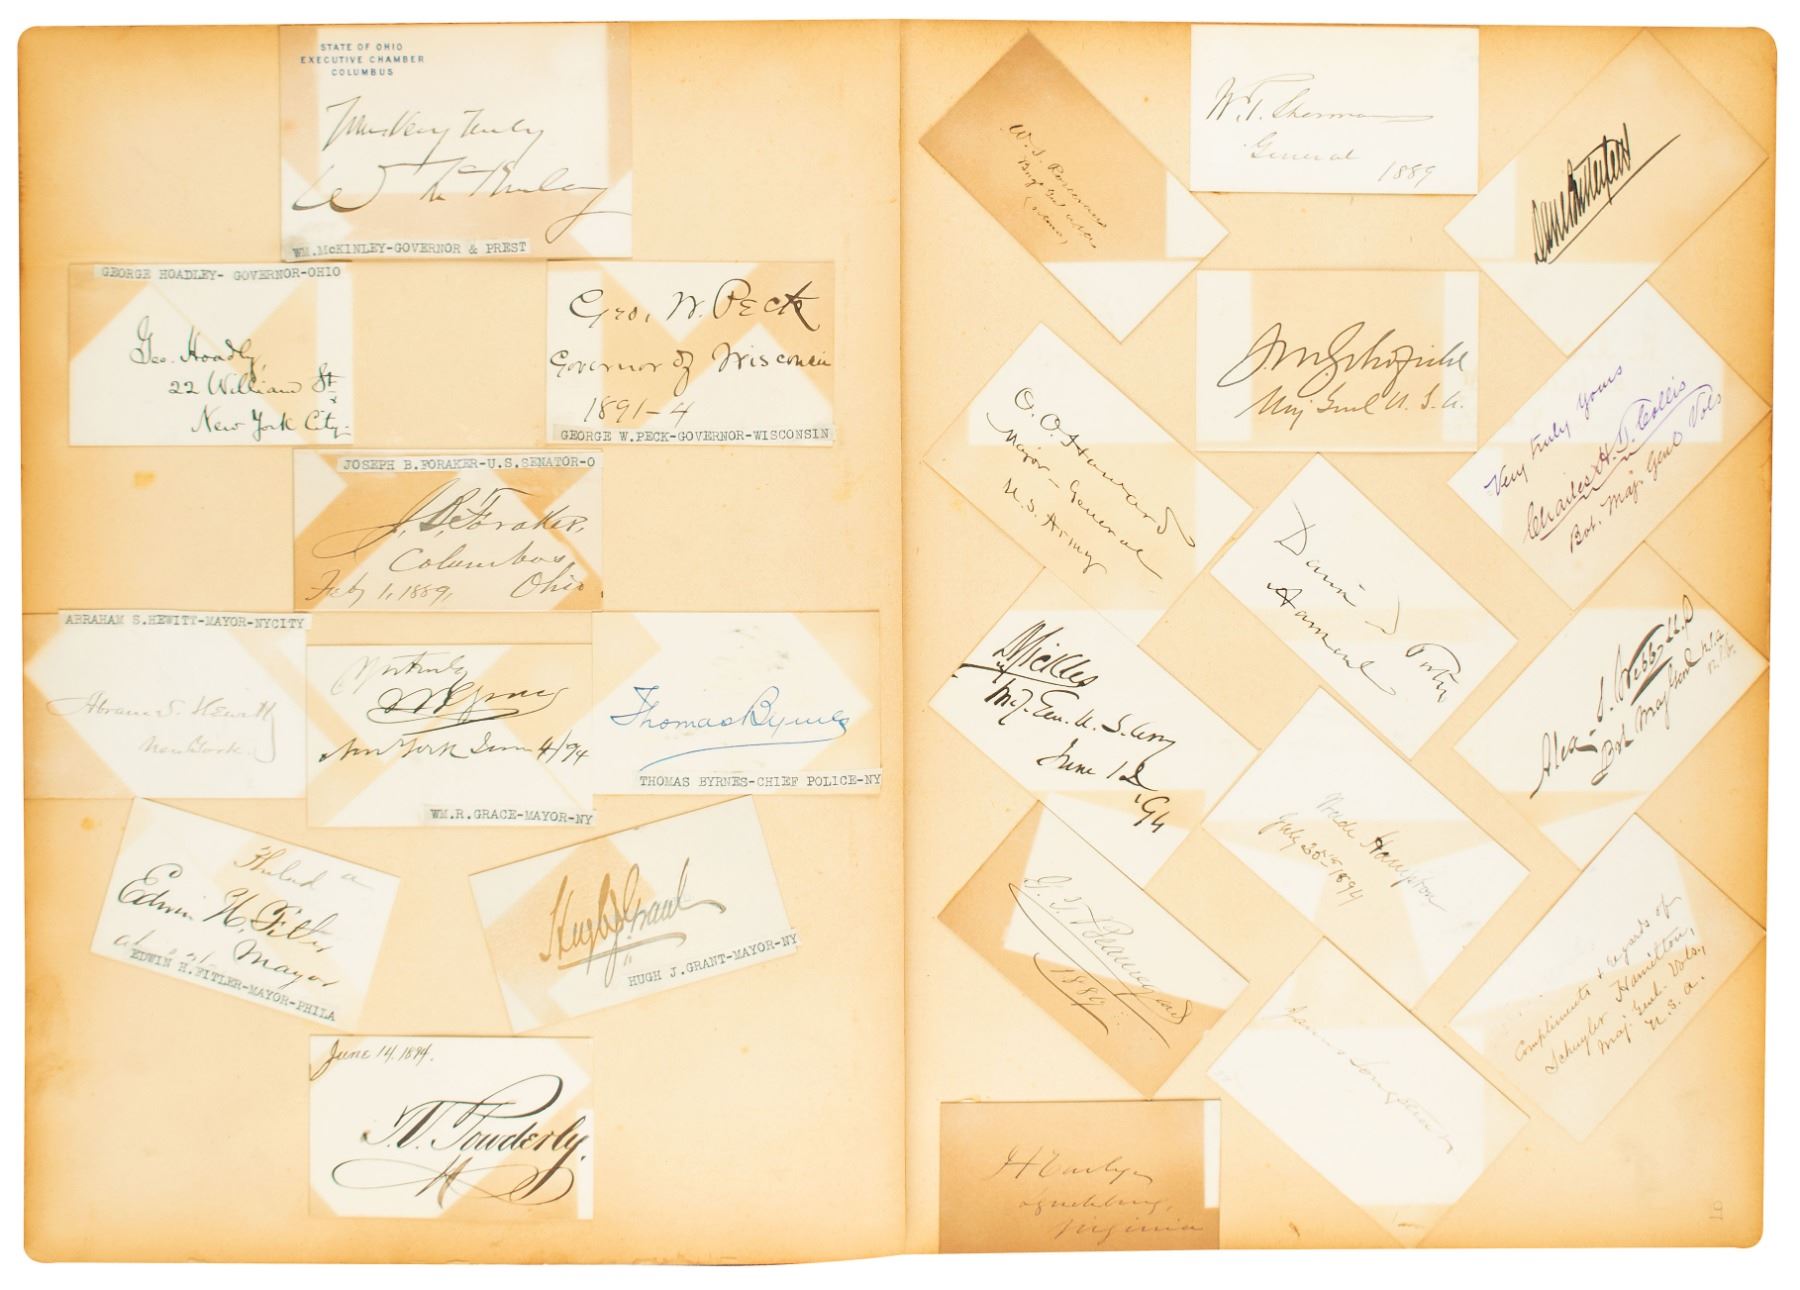 STATE OF OHIO
EXECUTIVE CHAMBER
COLUMBUS
Very truly
W McKinley
WM.McKINLEY-GOVERNOR & PREST
GEORGE HOADLEY- GOVERNOR-OHIO
Geo. Hoadly,
22 William St
New York City.
Geo. W. Peck
Governor of Wisconsin
1891-4
GEORGE W.PECK-GOVERNOR-WISCONSIN
JOSEPH B.FORAKER-U.S.SENATOR-O
J. B. Foraker,
Columbus
Feb 1, 1889, Ohio.
ABRAHAM S.HEWITT-MAYOR-NYCITY
Abram S. Hewitt
New York.
Yrs truly
W R Grace
New York June 4/94
WM.R.GRACE-MAYOR-NY
Thomas Byrnes
THOMAS BYRNES-CHIEF POLICE-NY
Philad a
Edwin H. Fitler
Mayor
EDWIN H.FITLER-MAYOR-PHILA
Hugh J. Grant
HUGH J. GRANT-MAYOR-NY
June 14, 1894.
T. V. Powderly.
W. S. Rosecrans
Brig Genl
W. T. Sherman
General
1889
Daniel Butterfield
J. M. Schofield
Maj Genl U. S. A.
O. O. Howard
Major-General
U. S. Army
Very truly yours
Charles H. T. Collis
Bvt. Maj. Genl Vols
Alex. S. Webb
Bvt Maj Genl U.S.A
D Sickles
Maj. Gen. U. S. Army
June 12
'94
Wade Hampton
July 30th 1894
G. T. Beauregard
1889
Compliments & regards of
Schuyler Hamilton,
Maj. Genl. Vols.,
U. S. A.
James Longstreet
J A Early
Lynchburg,
Virginia
19